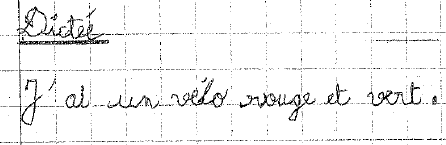 Dicteé
J'ai un vélo rouge et vert.